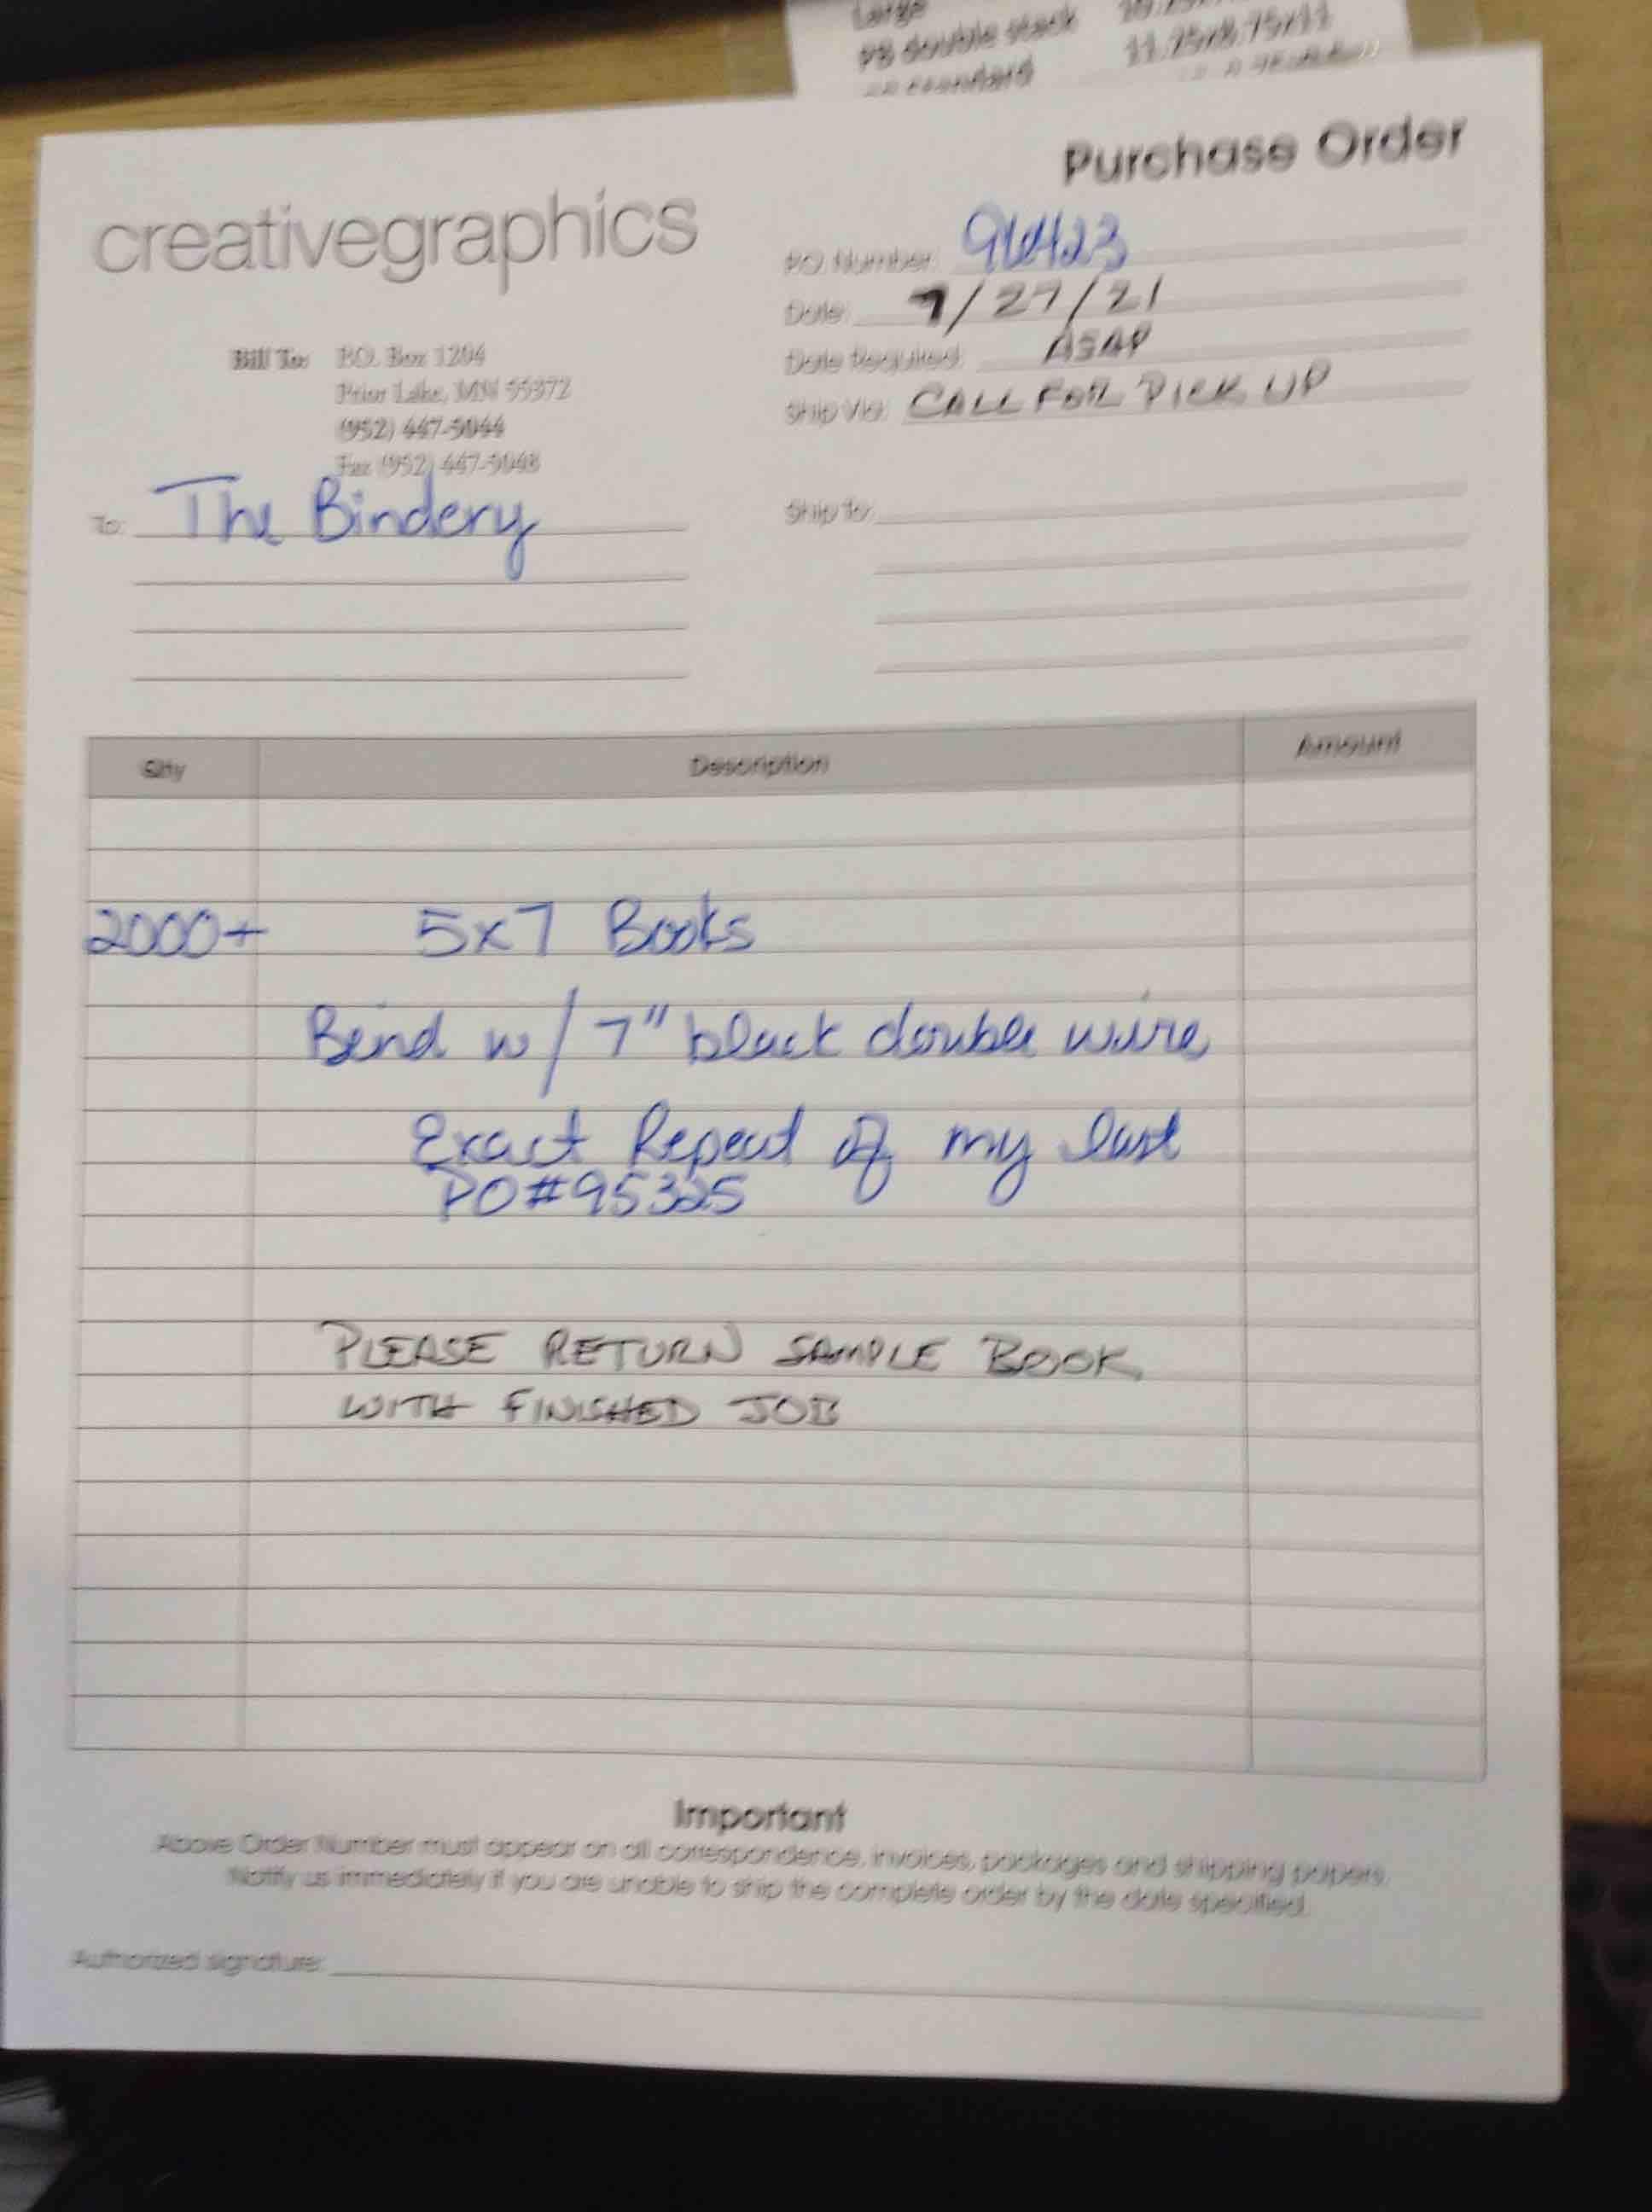 Large
PB double stack 11.25x8.75x11
standard
Purchase Order
creativegraphics
PO Number: 96423
Date: 7/27/21
Date Required: ASAP
Ship Via: CALL FOR PICK UP
Bill To: P.O. Box 1204
Prior Lake, MN 55372
(952) 447-5044
Fax (952) 447-5048
To: The Bindery
Ship to:
Qty Description Amount
2000+ 5x7 Books
Bind w/ 7" black double wire
Exact Repeat of my last
PO#95325
PLEASE RETURN SAMPLE BOOK
WITH FINISHED JOB
Important
Above Order Number must appear on all correspondence, invoices, packages and shipping papers.
Notify us immediately if you are unable to ship the complete order by the date specified.
Authorized signature: